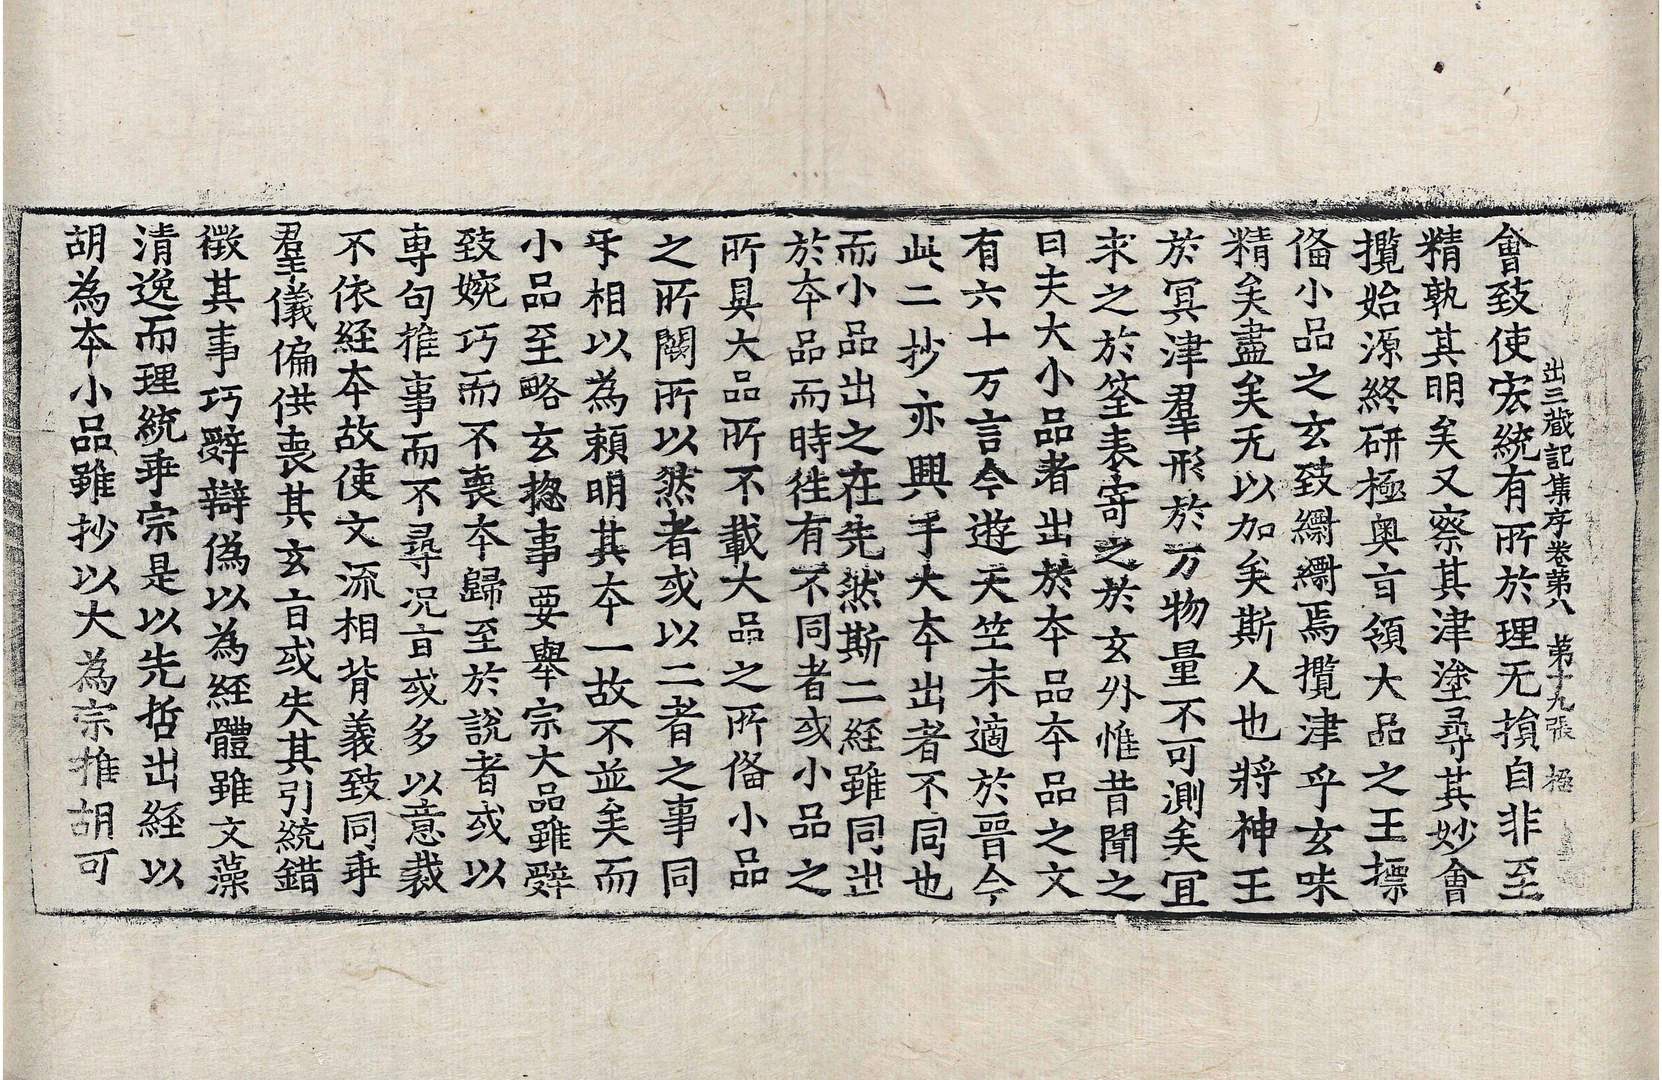 出三藏記集序卷第八　第十九張　極
會致使宏統有所於理无損自非至
精孰其明矣又察其津塗尋其妙會
攬始源終研極奥㫖領大品之王摽
俻小品之玄致𦆯𦆯焉攬津乎玄味
精矣盡矣无以加矣斯人也將神王
於冥津羣形於万物量不可測矣冝
求之於筌表寄之於玄外惟昔聞之
曰夫大小品者出於本品本品之文
有六十万言今遊天竺未適於晉今
此二抄亦興手大本出者不同也
而小品出之在先然斯二經雖同出
於本品而時徃有不同者或小品之
所具大品所不載大品之所俻小品
之所闕所以然者或以二者之事同
㸦相以為賴明其本一故不並矣而
小品至略玄揔事要舉宗大品雖辤
致婉巧而不喪本歸至於說者或以
専句推事而不尋况㫖或多以意裁
不依経本故使文流相背義致同乖
群儀偏供喪其玄㫖或失其引統錯
徵其事巧辤辯偽以為經體雖文藻
清逸而理統乖宗是以先哲出經以
胡為本小品雖抄以大為宗推胡可